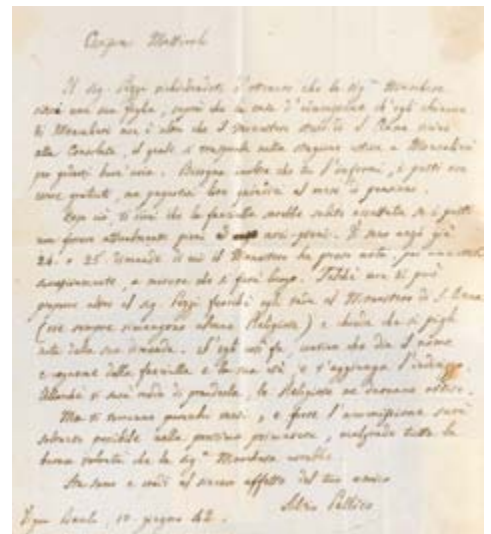 Il sig. Pozzi richiedendoti d'ottenere che la sig.ra Marchesa
una sua figlia, sappi che la casa d' ch'egli chiama
di Moncalieri non è altro che il monastero stesso di S. Anna vicino
alla Consolata, il quale si nella stagione estiva a Moncalieri
per goder buon'aria. Bisogna inoltre che tu l'informi, i posti non
sono gratuiti, ma lire al mese di pensione.
Dopo ciò, ti dirò che la fanciulla sarebbe subito accettata se i posti
non fossero attualmente pieni. Vi sono anzi già
24 o 25 dimande di cui il Monastero ha preso nota, per
successivamente, a misura che si farà luogo. Talchè non si può
altro al sig. Pozzi fuorchè egli vada al Monastero di S. Anna
(ove sempre rimangono alcune Religiose) e chieda che si pigli
nota della sua dimanda. S'egli ciò fa, che dia il nome
e cognome della fanciulla e la sua età, e s'aggiunga l'indirizzo.
Allorchè vi sarà modo di prenderla, le Religiose ne daranno avviso.
Ma ci vorranno parecchi mesi, e forse l'ammissione sarà
soltanto possibile nella prossima primavera, malgrado tutta la
buona volontà che la sig.ra Marchesa avrebbe.
Sta sano e credi al sincero affetto del tuo amico
Silvio Pellico
10 giugno 42.